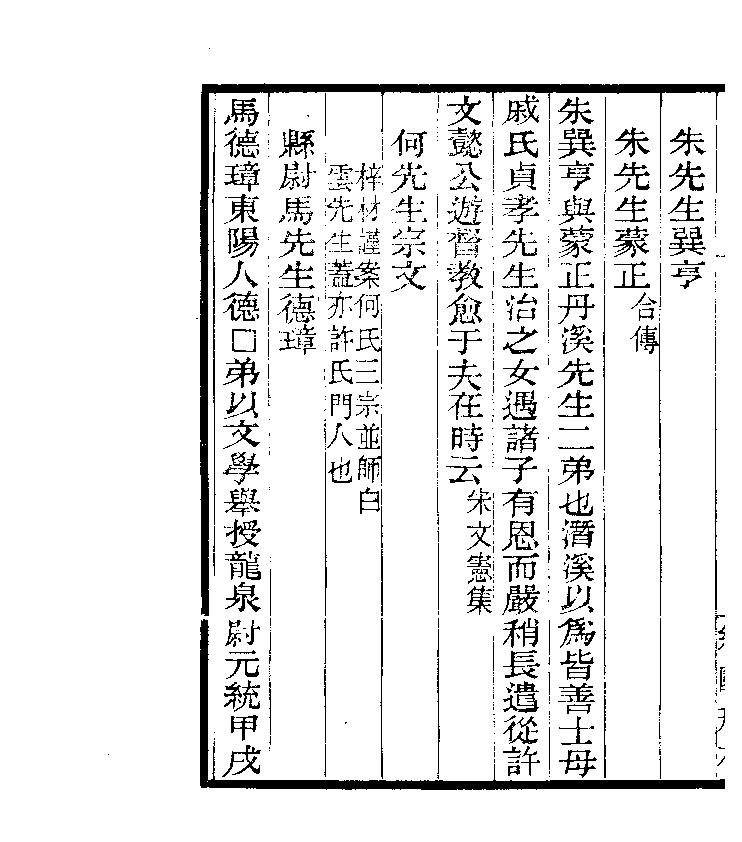 朱先生巽亨
朱先生蒙正合傳
朱巽亨與蒙正丹溪先生二弟也潛溪以爲皆善士母
戚氏貞孝先生治之女遇諸子有恩而嚴稍長遣從許
文懿公遊督教愈于夫在時云宋文憲集
何先生宗文
梓材謹案何氏三宗並師白
雲先生蓋亦許氏門人也
縣尉馬先生德璋
馬德璋東陽人德□弟以文學舉授龍泉尉元統甲戌